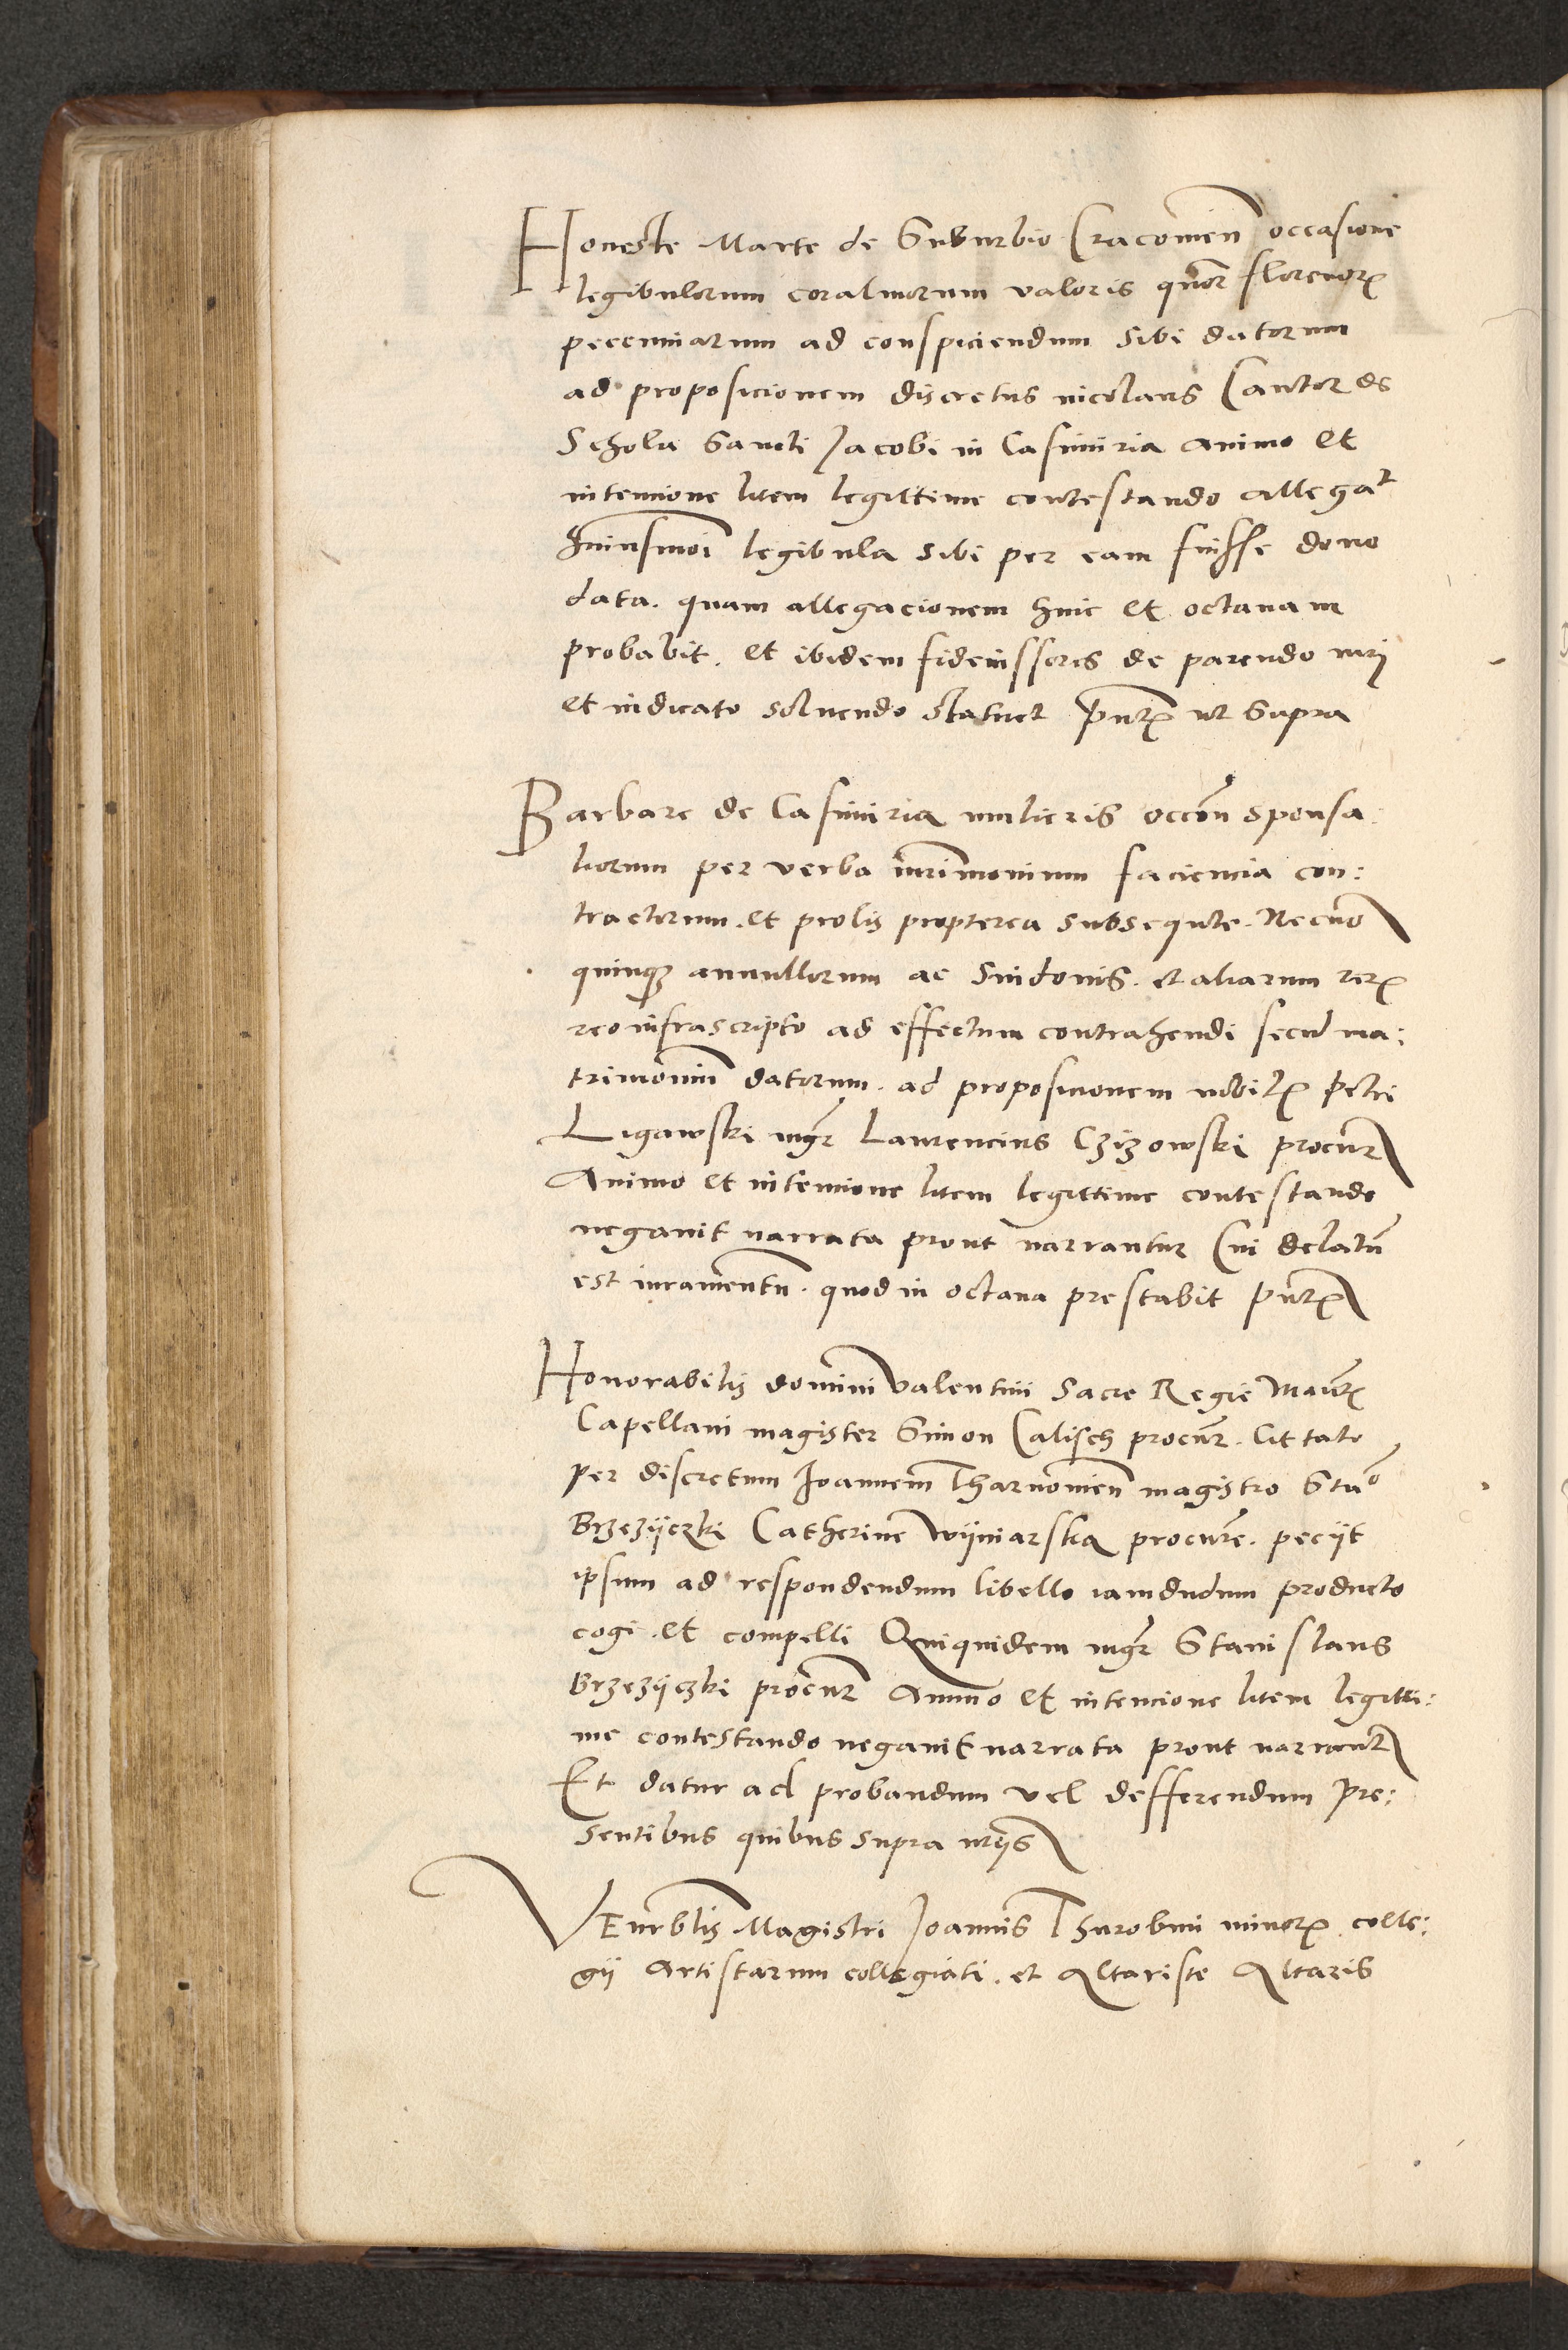 Honeste Marte de Suburbio Cracouien̄ occasione
legibulorum coralinorum valoris quor̄ florenorꝝ
peccuniarum ad conspiciendum sibi datorum
ad proposicionem discretus nicolaus Cantor de
Schola Sancti Jacobi in Casimiria animo et
intencione litem legittime contestando allegat
huiusmōi legibula sibi per eam fuisse dono
data. quam allegacionem hinc et octauam
probabit. et ibidem fideiussores de parendo iuri
et iudicato soluendo statuet pn̄tꝝ ut supra
Barbare de Casimiria mulieris occōn sponsa
liorum per verba mr̄imonium faciencia con:
tractorum. et prolis propterea subseqūte. Necnō
quinqꝫ annullorum ac Sindonis. et aliarum rerꝝ
reo infrascripto ad effectum contrahendi secū ma:
trimoniū datorum. ad proposicionem nobilꝝ Petri
Ligawski mḡr Laurencius Czizowski procur̄
Animo et intencione litem legittime contestando
negauit narrata prout narrantur Cui delatū
est iuramentū. quod in octaua prestabit pn̄tꝝ
Honorabilis domini Valentini Sacre Regie Maiētꝝ
Capellani magister Simon Calisch procur̄. Cittato
per discretum Joannem Tharnouien̄ magistro Stāo
Brzezÿczki Catherine Wÿniarska procur̄e. peciit
ipsum ad respondendum libello iamdudum producto
cogi. et compelli Quiquidem mḡr Stanislaus
Brzezÿczki procur̄ Animo et intencione litem legitti:
me contestando negauit narrata prout narrant̄
Et datur ad probandum vel defferendum pre:
sentibus quibus supra
Venr̄blis Magistri Joannis Thurobini minorꝝ. colle:
gii Artistarum collegiati. et Altariste Altaris